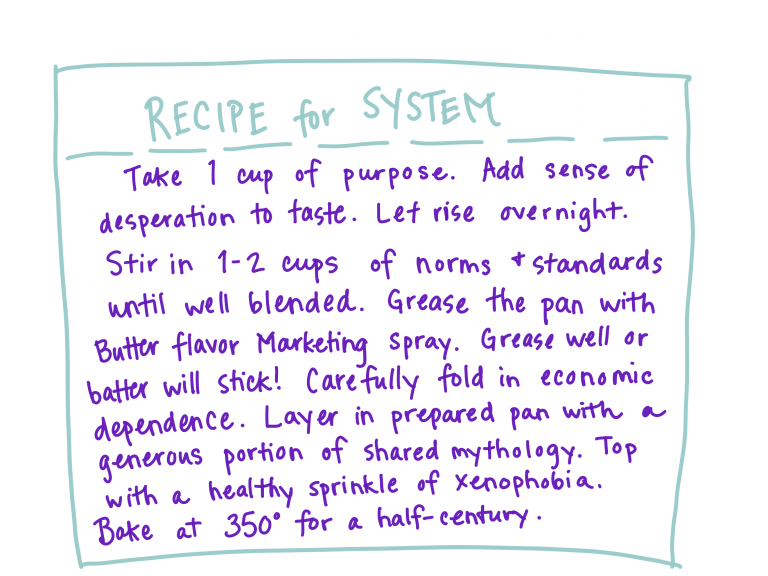 RECIPE for SYSTEM
Take 1 cup of purpose. Add sense of
desperation to taste. Let rise overnight.
Stir in 1-2 cups of norms + standards
until well blended. Grease the pan with
Butter flavor Marketing spray. Grease well or
batter will stick! Carefully fold in economic
dependence. Layer in prepared pan with a
generous portion of shared mythology. Top
with a healthy sprinkle of xenophobia.
Bake at 350° for a half-century.